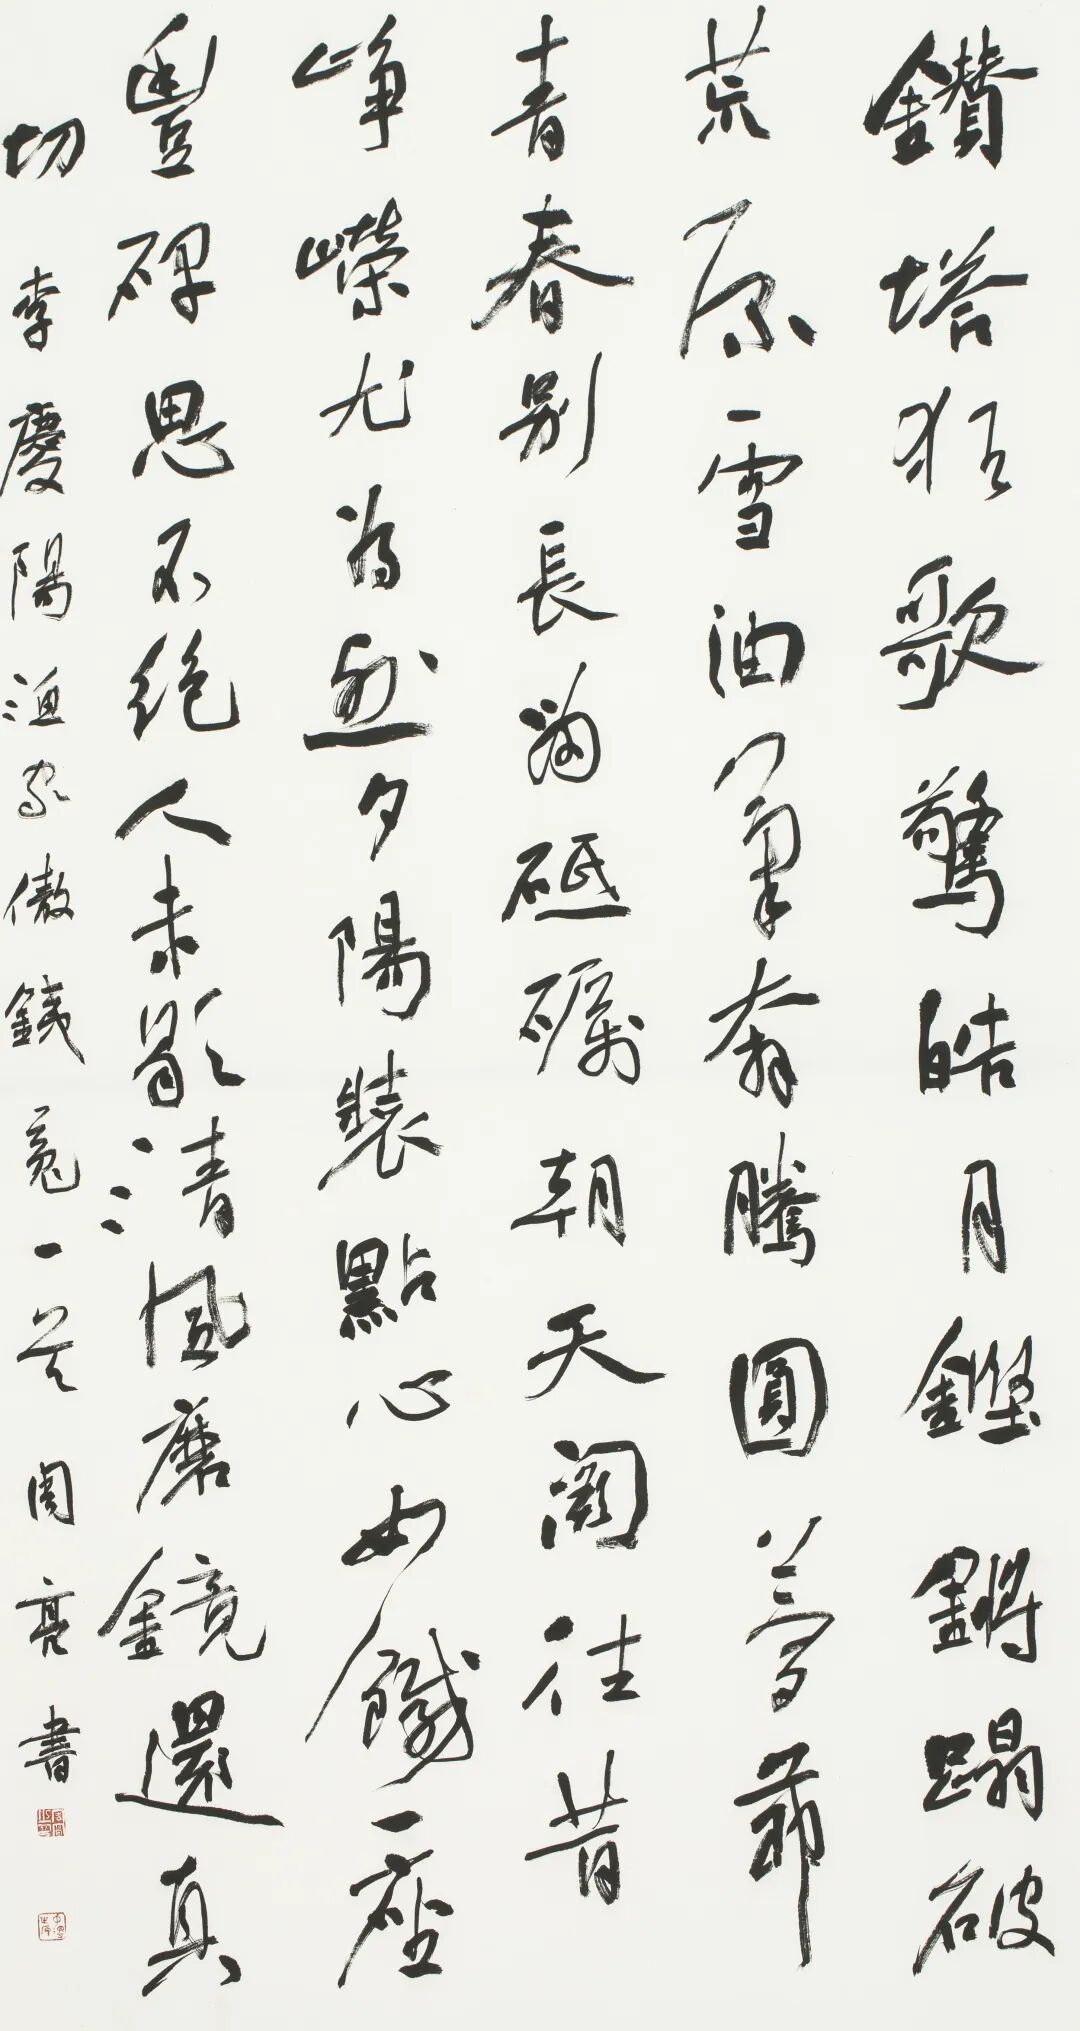 鑽塔狂歌驚皓月鏗鏘蹋破
荒原雪油奔騰圓夢節
青春別長為砥礪朝天闕往昔
崢嶸尤為烈夕陽裝點心如鐵一座
豐碑思不絕人未歇清風磨鏡還真
切 李慶陽漁家傲銕一首 周亮書